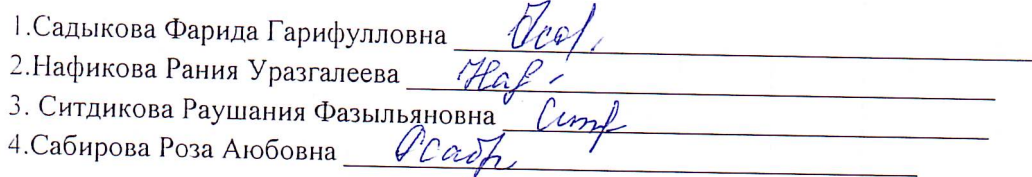 1.Садыкова Фарида Гарифулловна
2.Нафикова Рания Уразгалеева
3. Ситдикова Раушания Фазыльяновна
4.Сабирова Роза Аюбовна